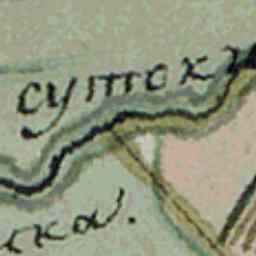 сутоки
ска.